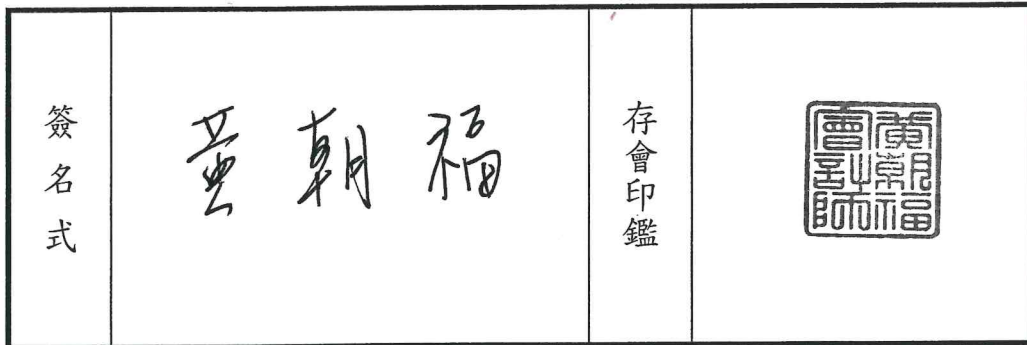 簽名式
黃朝福
存會印鑑
黃朝福
會計師